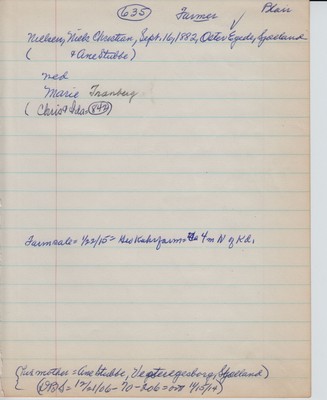 635 Farmer Blair
Nielsen, Niels Christian, Sept. 16, 1882, Oster Egede, Sjoelland
( & Ane Stubbe)
med
Marie Tranberg
( Chris & Ida = 842)
Farm sale = 1/22/15 = Geo Kuhr farm = 4 m N of Kd.
(his mother = Ane Stubbe, Vesteregesborg, Sjoelland)
( = 12/21/06 - 70 - 206 = 4/15/14)